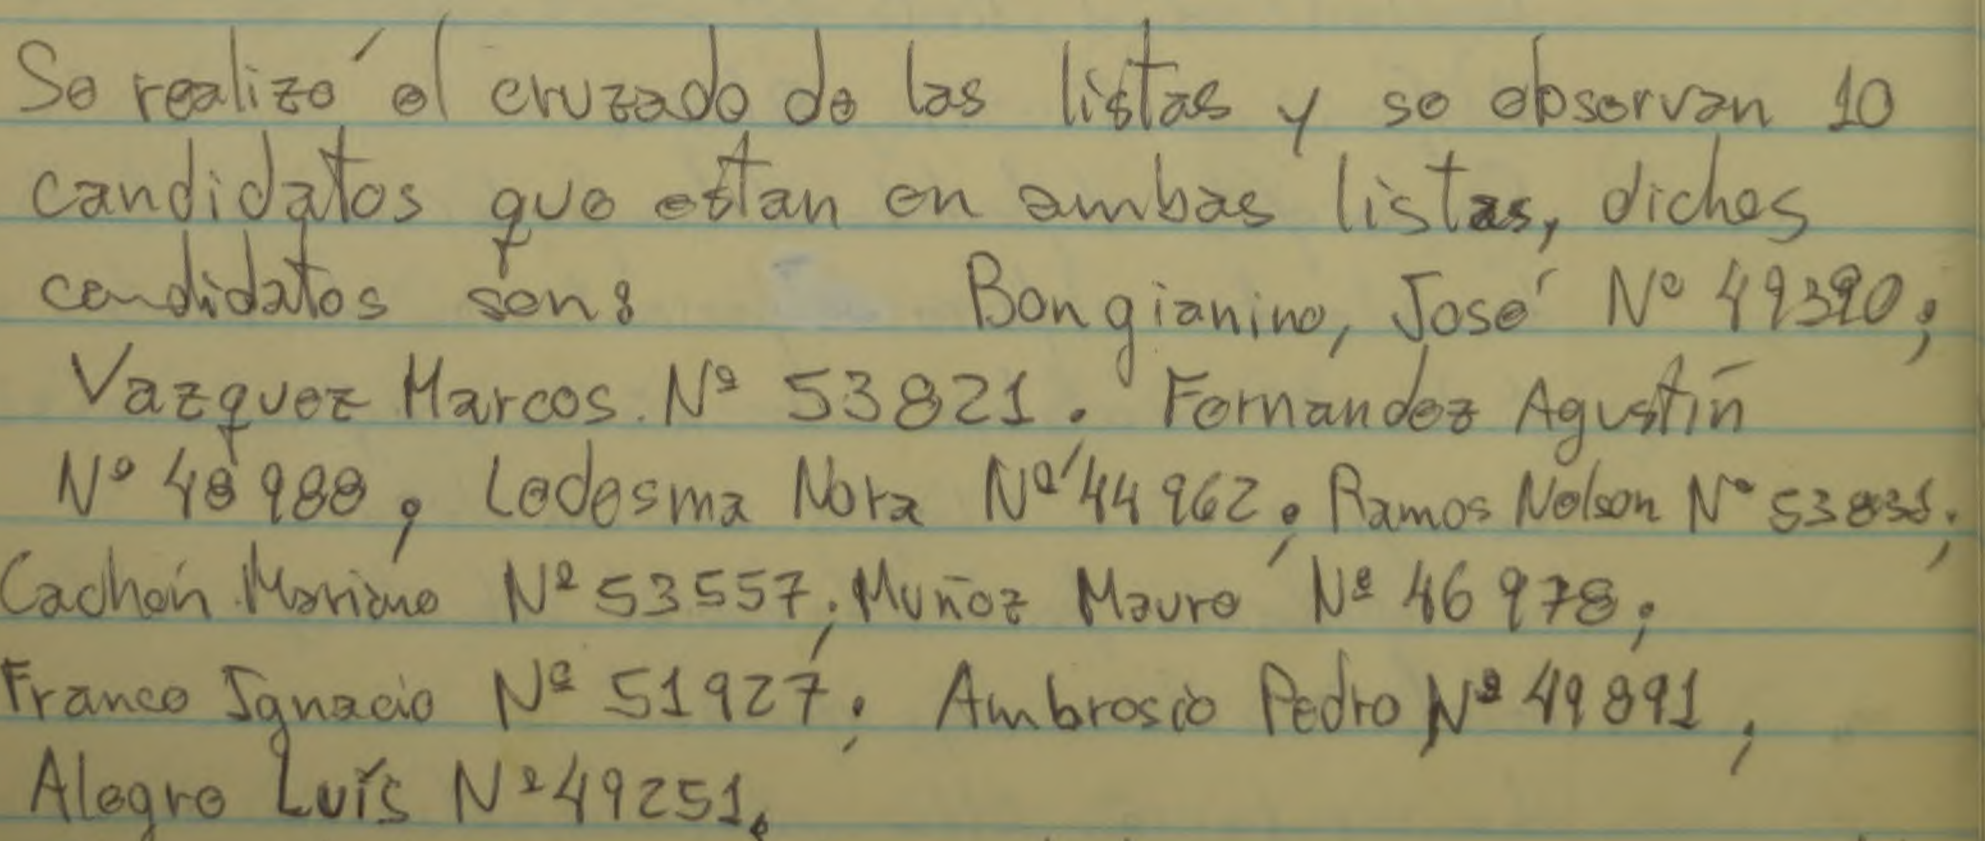 Se realizó el cruzado de las listas y se observan 10
candidatos que estan en ambas listas, dichos
candidatos son: Bongianino, José Nº 49390;
Vazquez Marcos. Nº 53821. Fernandez Agustín
Nº 48988; Ledesma Nora Nº 44962; Ramos Nelson Nº 53831;
Cachón Mariano Nº 53557; Muñoz Mauro Nº 46978;
Franco Ignacio Nº 51927; Ambrosio Pedro Nº 49891,
Alegre Luís Nº 49251.